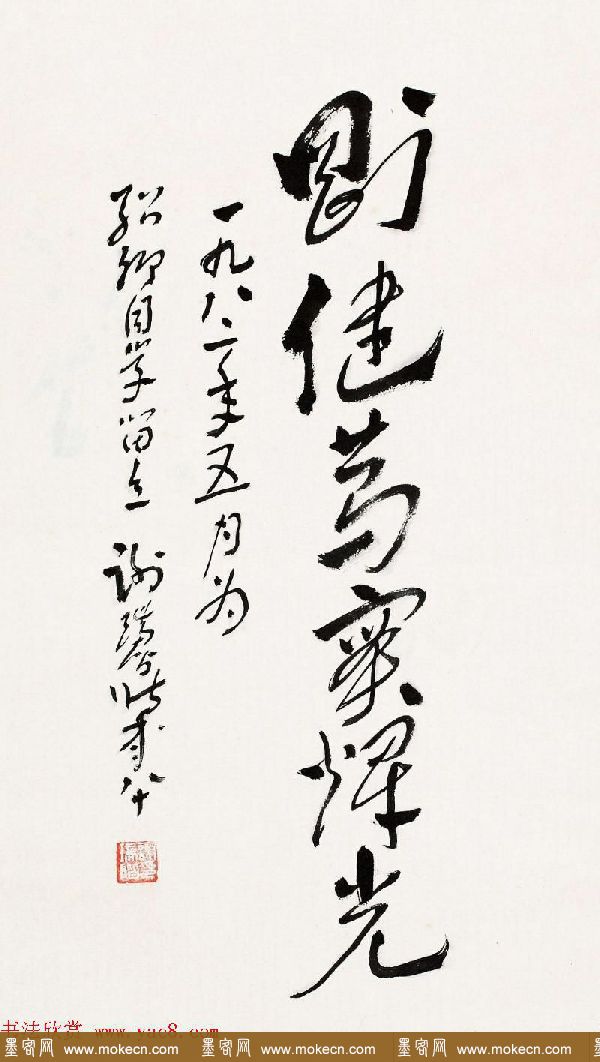 剛健篤實煇光
一九八二年五月为
学留念 谢瑞阶时年八十
书法欣赏 www.yac8.com
墨客网 www.mokecn.com 墨客网 www.mokecn.com 墨客网 www.mokecn.com